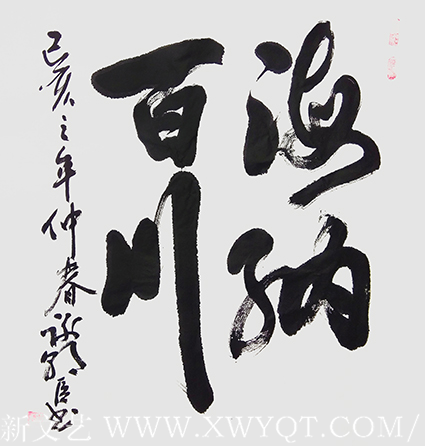 海纳
百川
己亥之年仲春
书
新文艺 WWW.XWYQT.COM